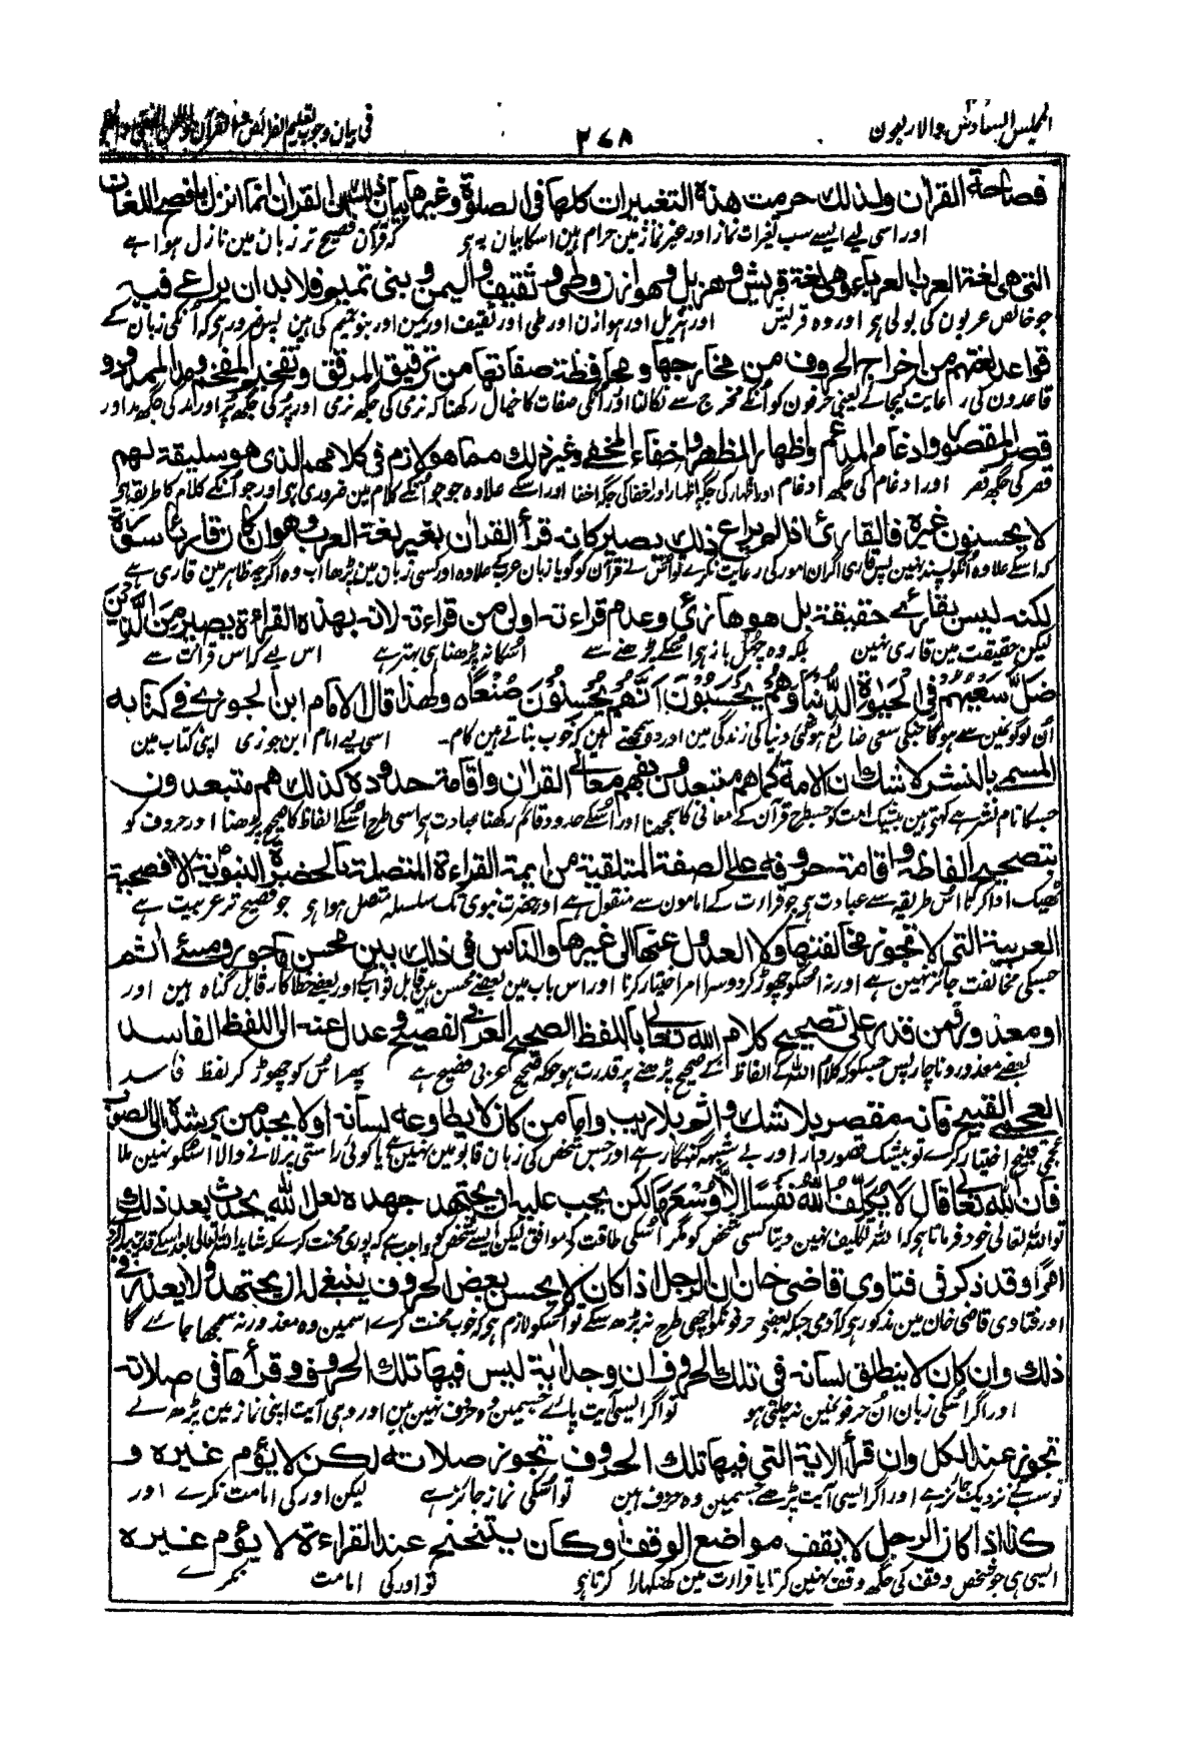 المجلس السادس والاربعون
٢٧٨
فی بیان وجوب تعلیم الفرائض من القرآن
فصاحة القرآن ولذلك حرمت هذه التغييرات كلها فى الصلوة وغيرها بيان ذلك ان القران انما انزل بافصح اللغات
اور اسی لیے ایسے سب تغیرات نماز اور غیر نماز مین حرام ہین اسکا بیان یہ ہی کہ قرآن فصیح تر زبان مین نازل ہوا ہے
التى هى لغة العرب العرباء وهى لغة قريش وهزيل وهوازن وطى وثقيف واليمن وبنى تميم فلابد ان يراعى فيه
جو خالص عربون کی بولی ہی اور وہ قریش اور ہزیل اور ہوازن اور طی اور ثقیف اور یمن اور بنو تمیم کی ہین پس ضرور ہی کہ انکی زبان کے
قواعد لغتهم من اخراج الحروف من مخارجها ومحافظة صفاتها من ترقيق المرقق وتفخيم المفخم ومد الممدود و
قاعدون کی رعایت کیجائے یعنی حرفون کو انکے مخرج سے نکالنا اور انکی صفات کا خیال رکھنا کہ نرمی کی جگہ نرمی اور پر کی جگہ پر اور مد کی جگہ مد اور
قصر المقصور وادغام المدغم واظهار المظهر واخفاء المخفى وغير ذلك مما هو لازم فى كلامهم الذى هو سليقة لهم
قصر کی جگہ قصر اور ادغام کی جگہ ادغام اور اظہار کی جگہ اظہار اور اخفا کی جگہ اخفا اور اسکے علاوہ جو جو انکے کلام مین ضروری ہی اور جو انکے کلام کا طریقہ ہی
لا يحسنون غيره فالقارئ اذا لم يراع ذلك يصير كانه قرأ القران بغير لغة العرب وهو ان كان قاريا صورة
کہ اسکے علاوہ انکو پسند نہین پس قاری اگر ان امور کی رعایت نکرے تو اسنے قرآن کو گویا زبان عرب کے علاوہ اور کسی زبان مین پڑھا اب وہ اگرچہ ظاہر مین قاری ہے
لكنه ليس بقارئ حقيقة بل هو هازئ وعدم قراءته اولى من قراءته لانه بهذه القراءة يصير من الذين
لیکن حقیقت مین قاری نہین بلکہ وہ چہل باز ہوا اسکے پڑھنے سے اسکا نہ پڑھنا ہی بہتر ہے اس لیے کہ اس قرات سے
ضل سعيهم فى الحيوة الدنيا وهم يحسبون انهم يحسنون صنعا ولهذا قال الامام ابن الجوزى فى كتابه
ان لوگونمین سے ہوگا جنکی سعی ضائع ہوگئی دنیا کی زندگی مین اور وہ سمجھتے ہین کہ خوب بناتے ہین کام۔ اسی لیے امام ابن جوزی اپنی کتاب مین
المسمى بالنشر لا شك ان الامة كما هم متعبدون بفهم معانى القران واقامة حدوده كذلك هم متعبدون
جسکا نام نشر ہے کہتے ہین بیشک امت کو جسطرح قرآن کے معانی کا سمجھنا اور اسکے حدود قائم رکھنا عبادت ہی اسی طرح اسکے الفاظ کا صحیح پڑھنا اور حروف کو
بتصحيح الفاظه واقامة حروفه على الصفة المتلقية من ايمة القراءة المتصلة بالحضرة النبوية الافصحية
ٹھیک ادا کرنا اس طریقہ سے عبادت ہی جو قرارت کے امامون سے منقول ہے اور حضرت نبوی تک سلسلہ متصل ہوا ہو جو فصیح تر عربیت ہے
العربية التى لا تجوز مخالفتها ولا العدول عنها الى غيرها والناس فى ذلك بين محسن ماجور ومسئ اثم
جسکی مخالفت جائز نہین ہے اور نہ اسکو چھوڑ کر دوسرا امر اختیار کرنا اور اس باب مین بعضے محسن ہین قابل ثواب کے اور بعضے خطا کار قابل گناہ ہین اور
او معذور فمن قدر على تصحيح كلام الله تعالى باللفظ الصحيح العربى الفصيح وعدل عنه الى اللفظ الفاسد
بعضے معذور و ناچار پس جسکو کہ کلام اللہ کے الفاظ کے صحیح پڑھنے پر قدرت ہو جو کہ صحیح عربی فصیح ہے پھر اس کو چھوڑ کر لفظ فاسد
العجمى القبيح فانه مقصر بلا شك واثم بلا ريب واما من كان لا يطاوعه لسانه او لا يجد من يرشده الى الصواب
عجمی قبیح اختیار کرے تو بیشک قصور دار اور بے شبہہ گنہگار ہے اور جس شخص کی زبان قابو مین نہین ہے یا کوئی راستی پر لانے والا اسکو نہین ملا
فان الله تعالى قال لا يكلف الله نفسا الا وسعها لكن يجب عليه ان يجتهد جهده لعل الله يحدث بعد ذلك
تو اللہ تعالی خود فرماتا ہی کہ اللہ تکلیف نہین دیتا کسی شخص کو مگر اسکی طاقت کے موافق لیکن ایسے شخص کو واجب ہے کہ پوری محنت کرے کہ شاید اللہ تعالی بعد اسکے
امرا وقد ذكر فى فتاوى قاضى خان ان الرجل اذا كان لا يحسن بعض الحروف ينبغى له ان يجتهد ولا يعذر فى
اور فتاوی قاضی خان مین مذکور ہی کہ آدمی جبکہ بعضے حرفونکو اچھی طرح نہ پڑھ سکے تو اسکو لازم ہی کہ خوب محنت کرے اسمین وہ معذور نہ سمجھا جائے گا
ذلك وان كان لا ينطلق لسانه فى تلك الحروف ان وجد اية ليس فيها تلك الحروف وقرأها فى صلاته
اور اگر اسکی زبان ان حرفونمین نہ چلتی ہو تو اگر ایسی آیت پائے جسمین وہ حرف نہین ہین اور وہی آیت اپنی نماز مین پڑھ لے
تجوز عند الكل وان قرأ الاية التى فيها تلك الحروف تجوز صلاته لكن لا يؤم غيره و
تو سب کے نزدیک جائز ہے اور اگر ایسی آیت پڑھے جسمین وہ حرف ہین تو اسکی نماز جائز ہے لیکن اور کی امامت نکرے اور
كذا اذا كان الرجل لا يقف مواضع الوقف وكان يتنحنح عند القراءة لا يؤم غيره
ایسی ہی جو شخص وقف کی جگہ وقف نہین کرتا یا قرارت مین کھنکھارا کرتا ہو تو اور کی امامت نکرے